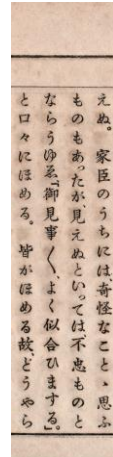 えぬ。家臣のうちには、奇怪なことゝ思ふ
ものもあつたが、見えぬといつては不忠ものと
ならうゆゑ、『御見事〳〵、よく似合ひまする。』
と口々にほめる。皆がほめる故、どうやら